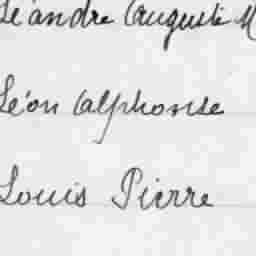 Léandre Auguste M
Léon Alphonse
Louis Pierre